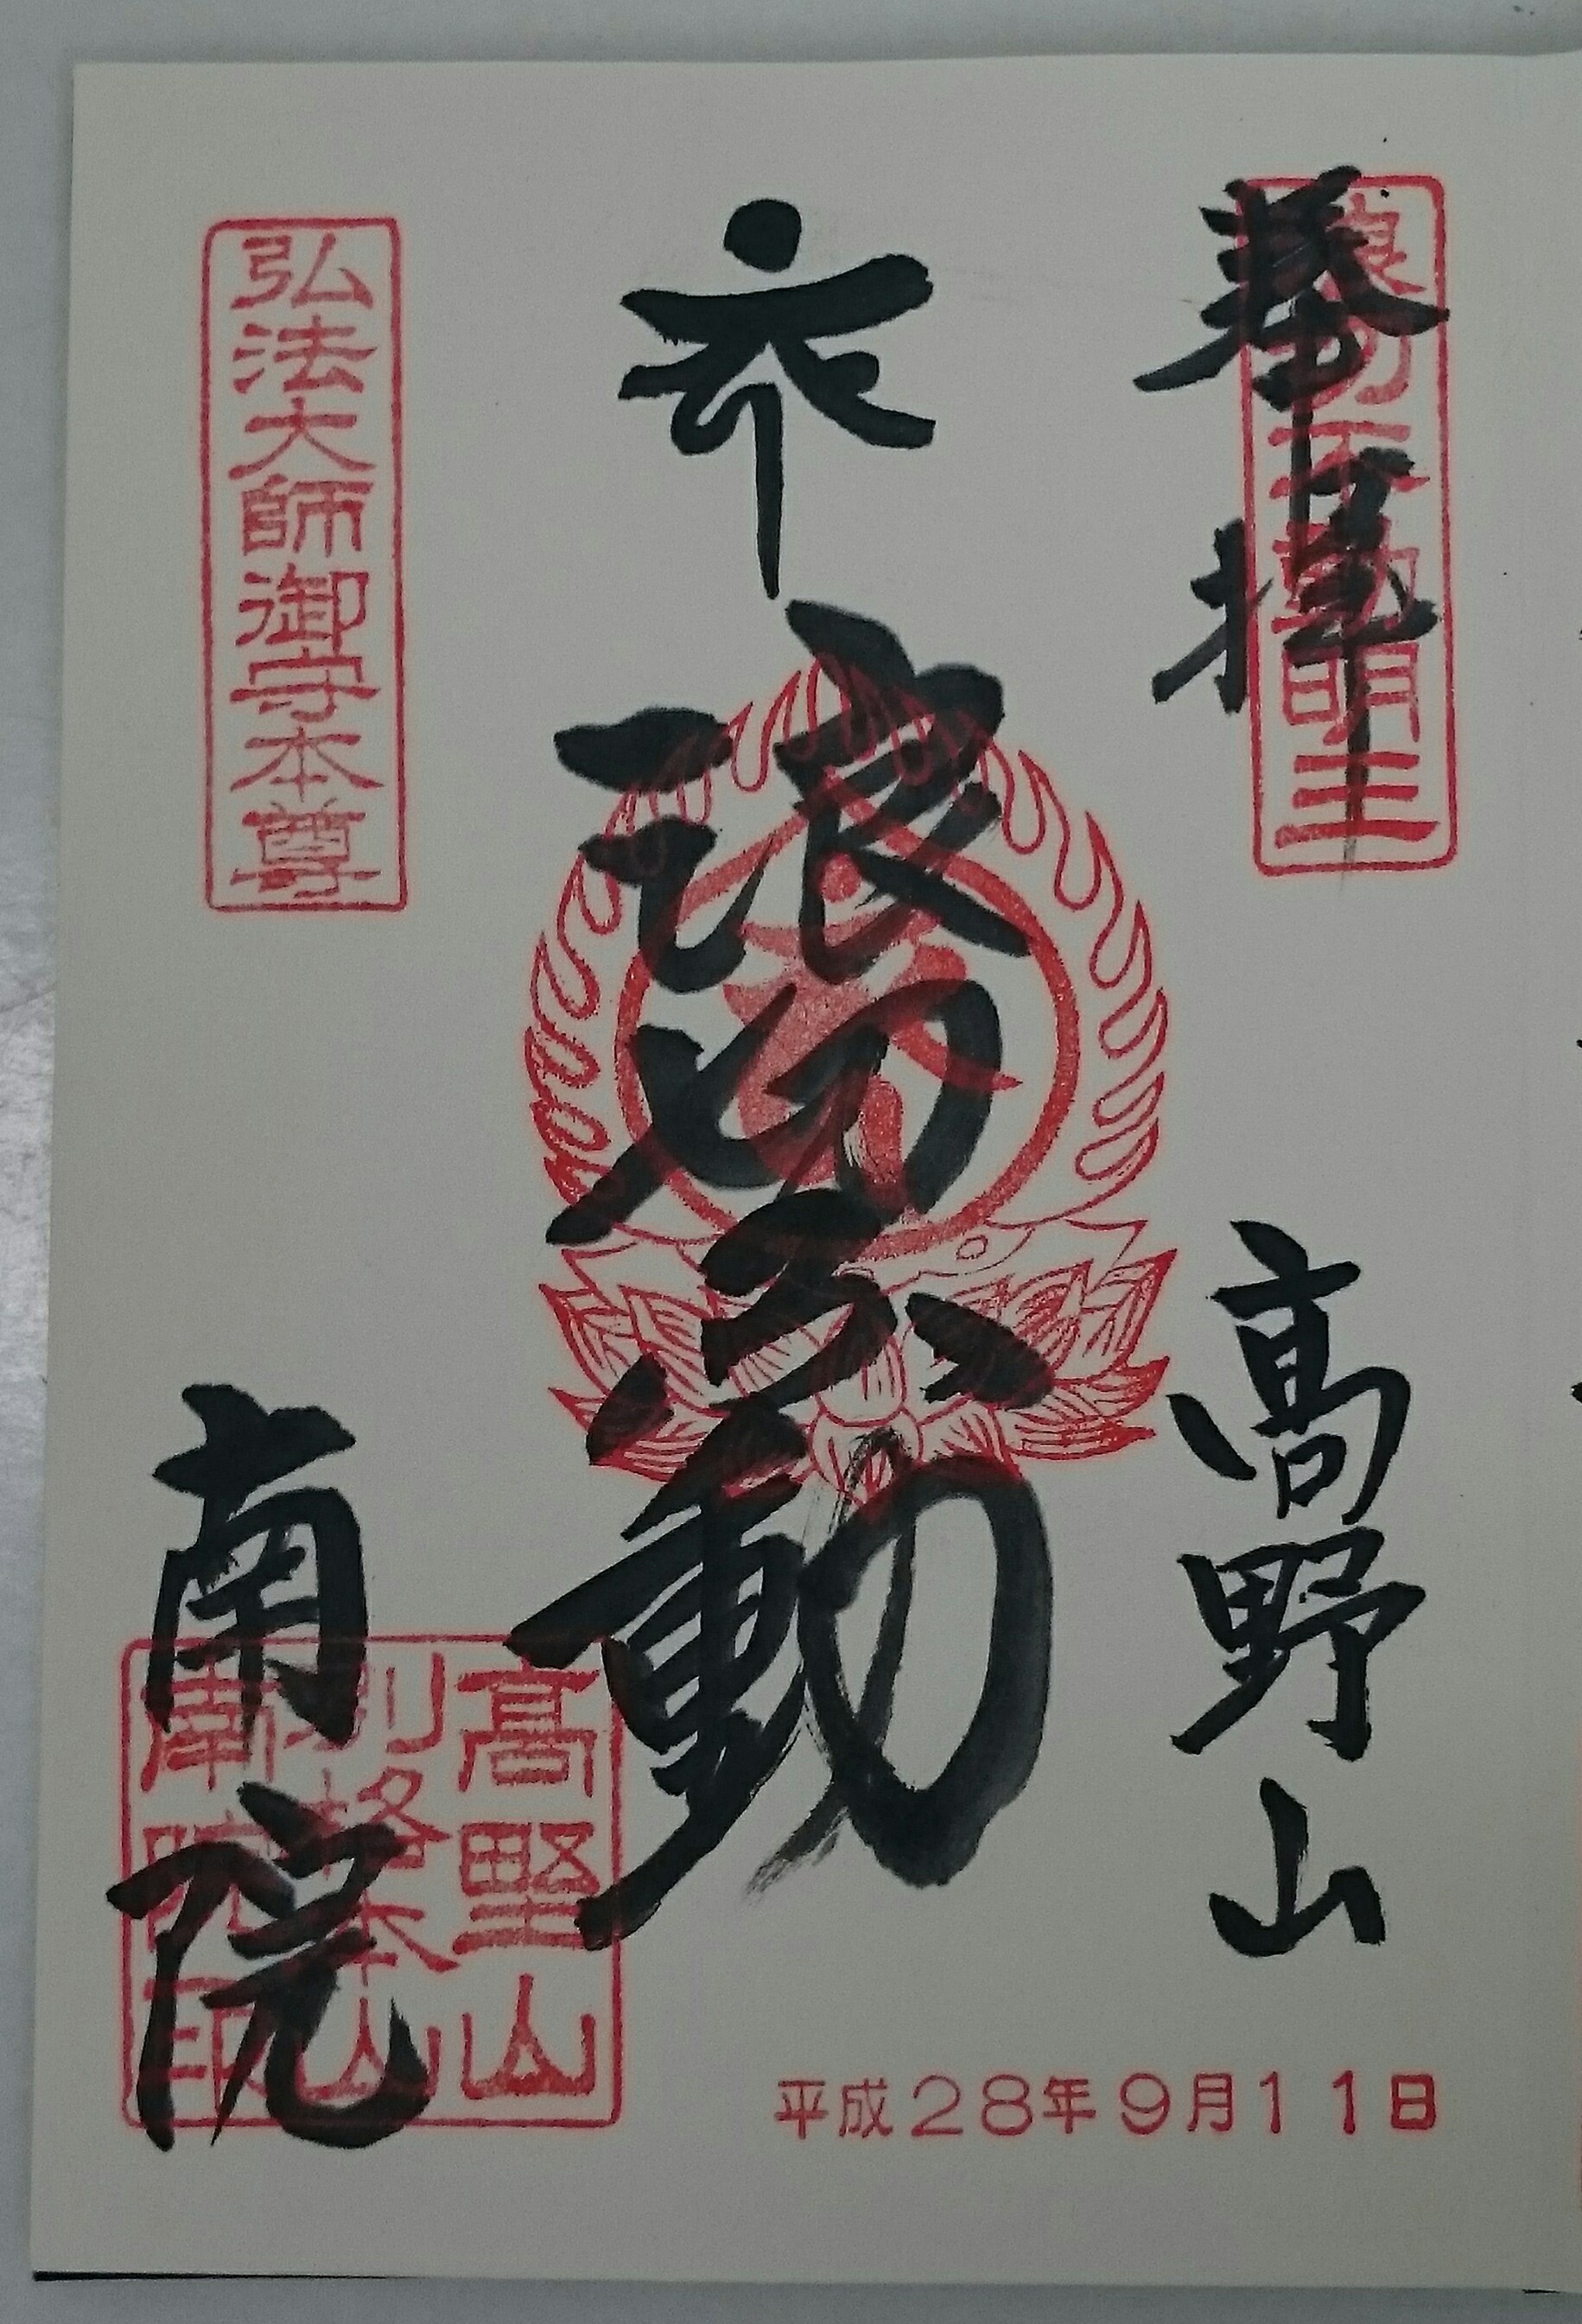 奉拝
浪切不動明王
高野山
浪切不動
弘法大師御守本尊
南院
高野山
別格本山
南院印
平成28年9月11日